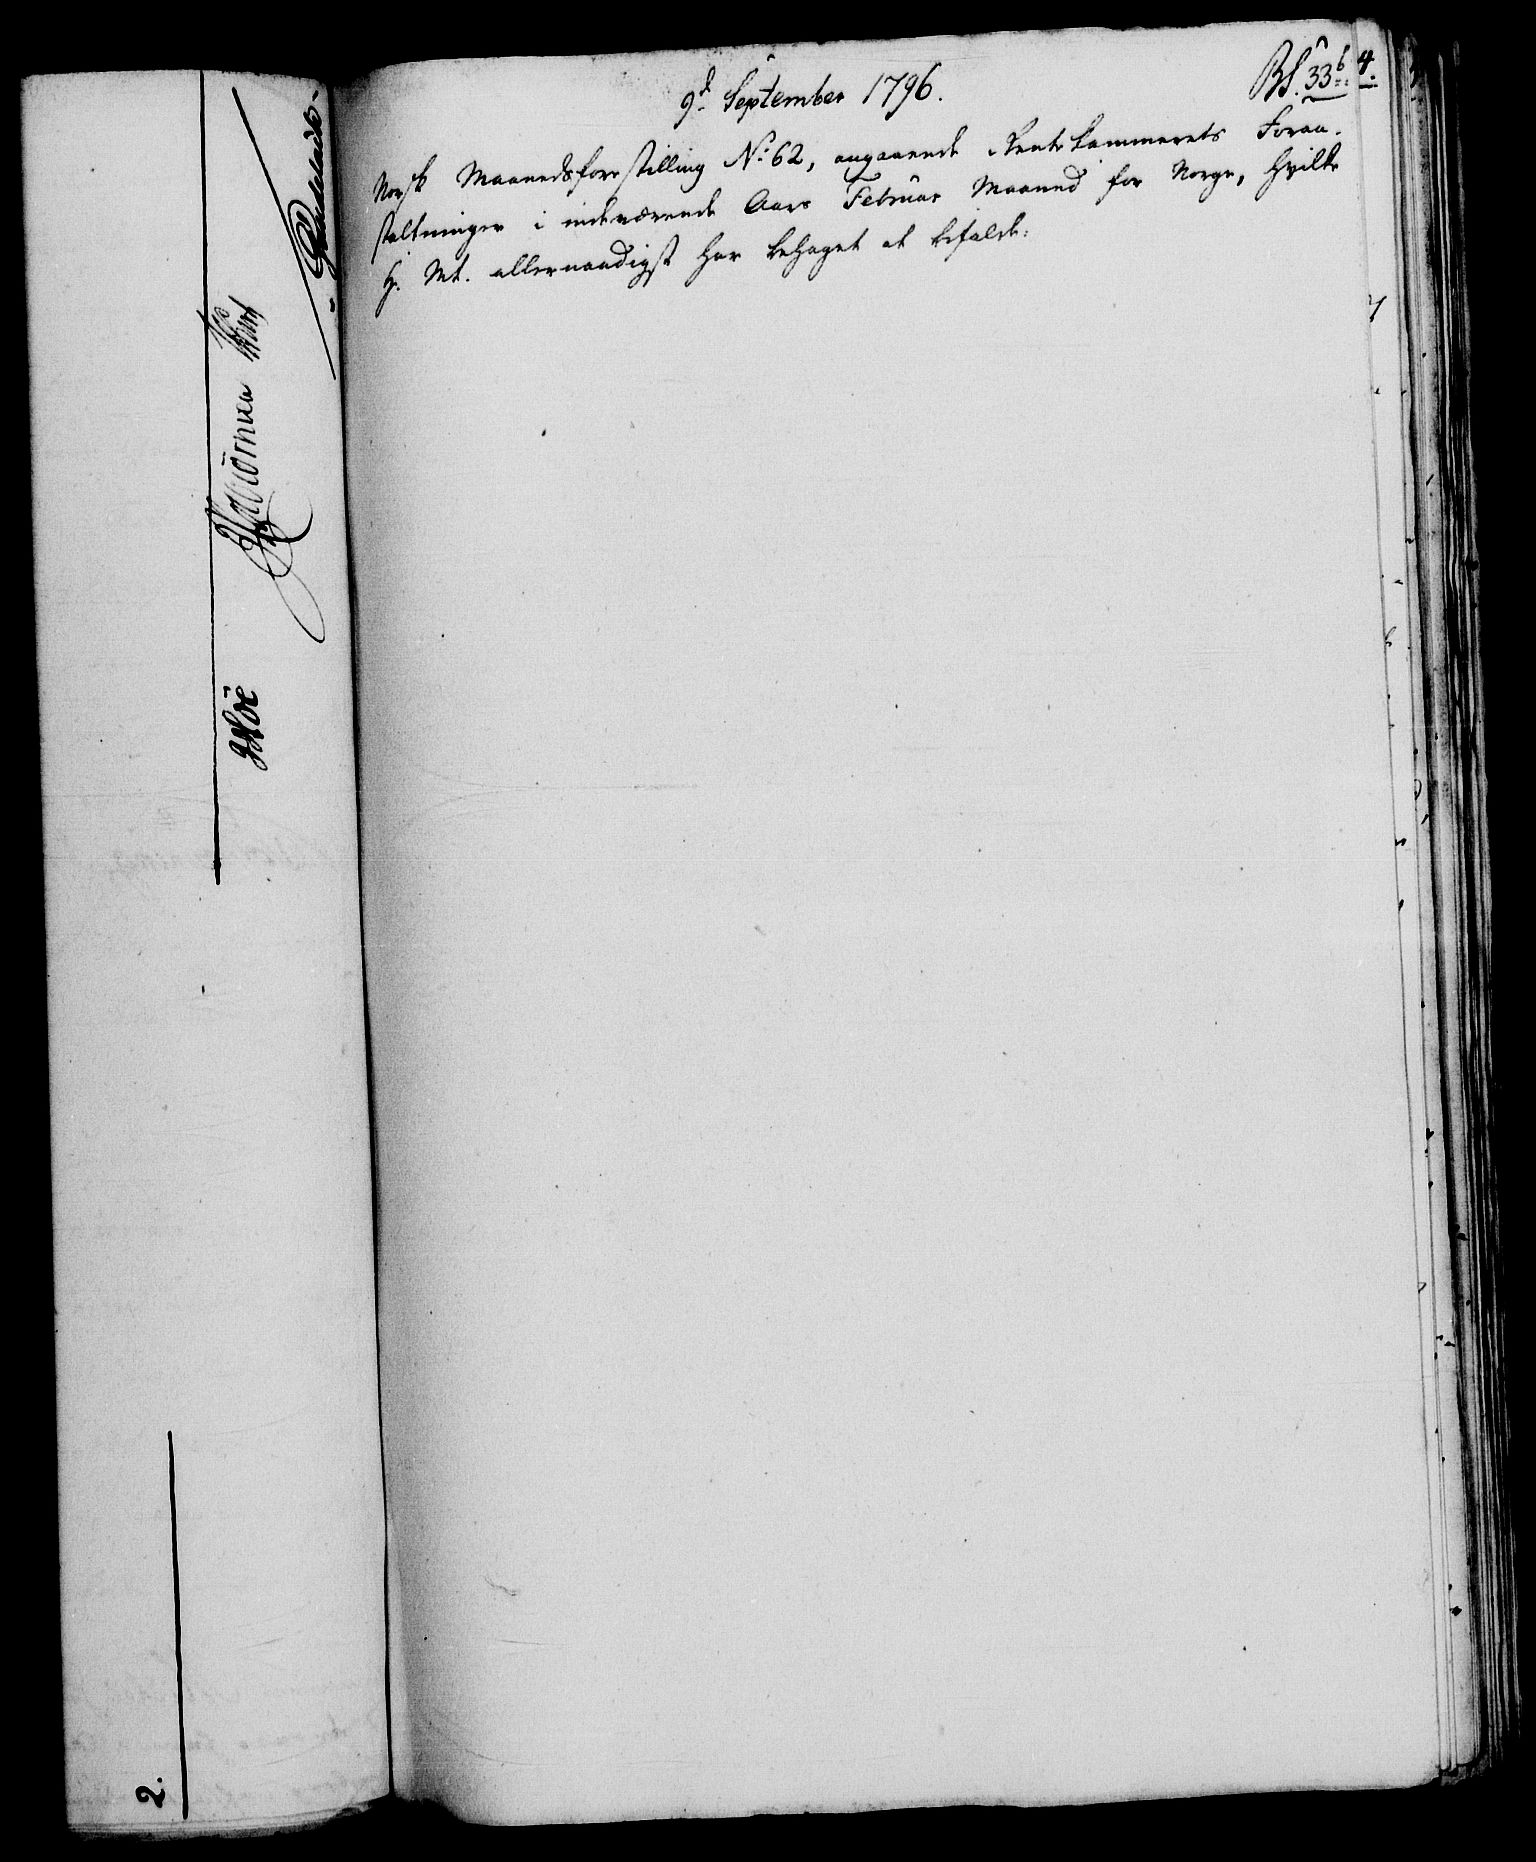 9.d September 1796.
Bl. 336.
Norsk Maanedsforestilling No. 62, angaaende Rentekammerets Foran-
staltninger i indeværende Aars Februar Maaned for Norge, hvilke
H. Mt. allernaadigst har behaget at bifalde.
2.